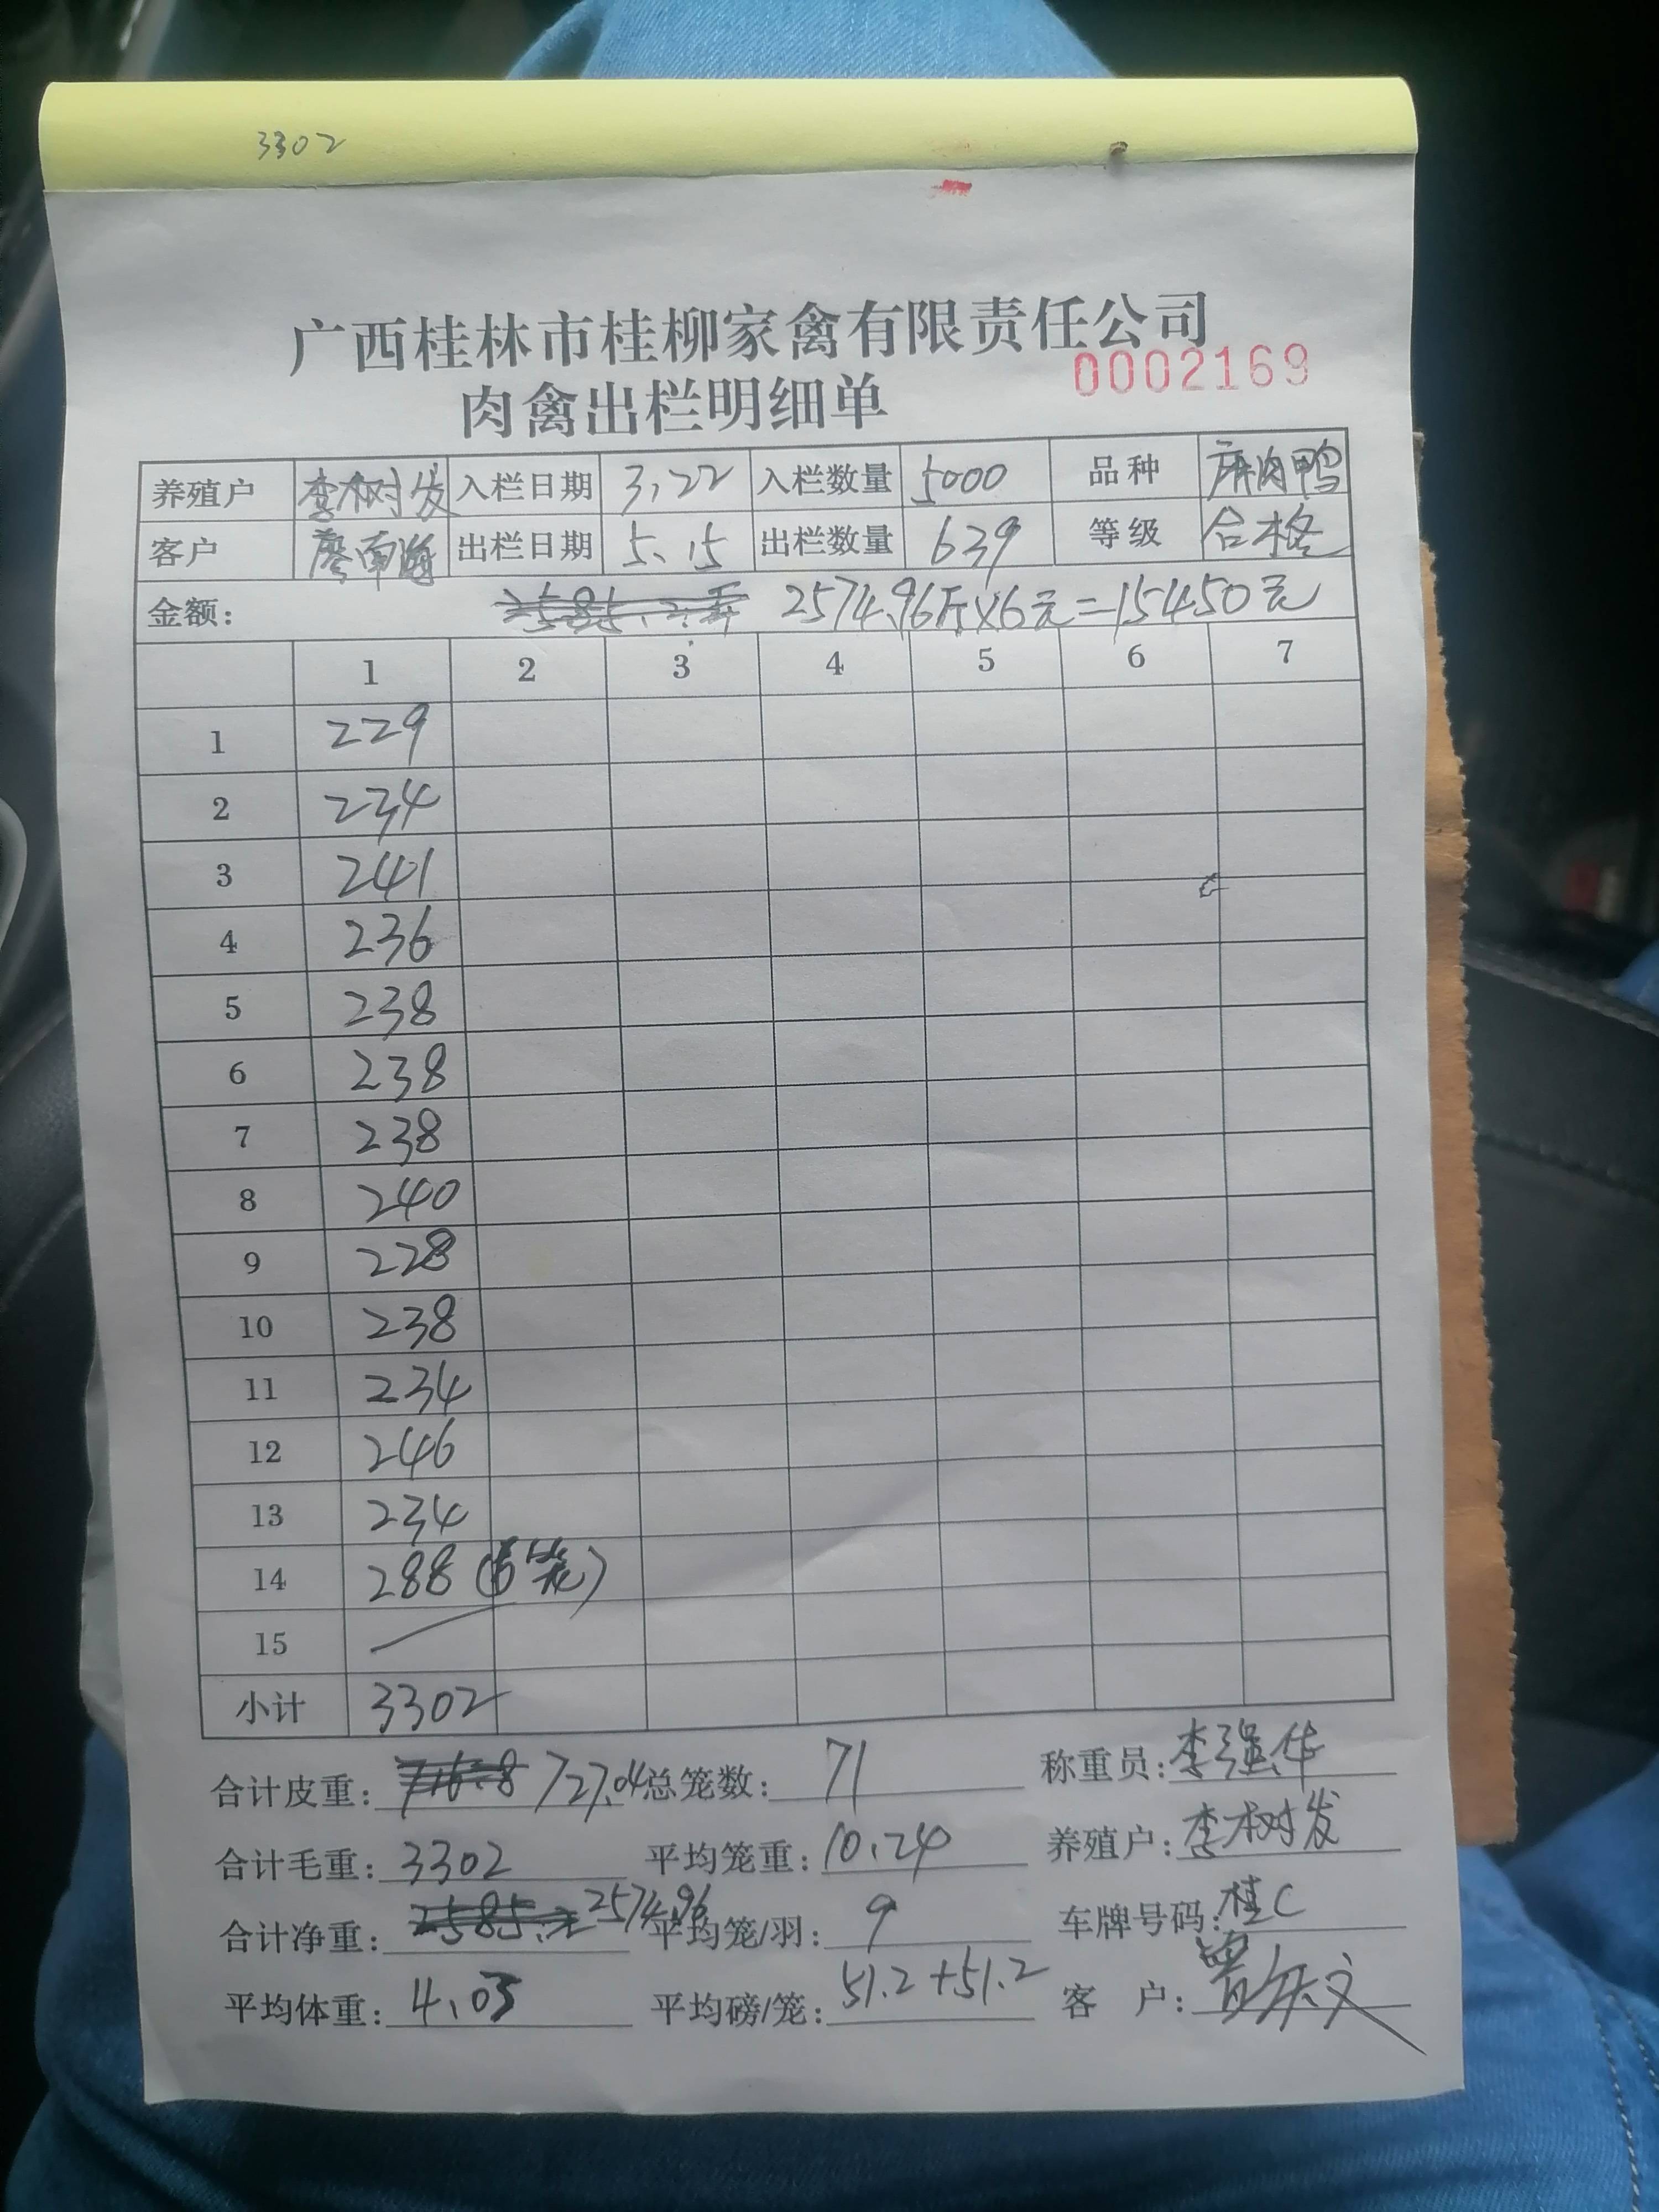 3302
广西桂林市桂柳家禽有限责任公司
肉禽出栏明细单 0002169
养殖户 李树发 入栏日期 3.22 入栏数量 5000 品种 麻肉鸭
客户 廖南海 出栏日期 5.15 出栏数量 639 等级 合格
金额: 2574.96斤×6元=15450元
1 2 3 4 5 6 7
1 229
2 234
3 241
4 236
5 238
6 238
7 238
8 240
9 228
10 238
11 234
12 246
13 234
14 288(6笼)
15
小计 3302
合计皮重: 727.04 总笼数: 71 称重员: 李强华
合计毛重: 3302 平均笼重: 10.24 养殖户: 李树发
合计净重: 2574.96 平均笼/羽: 9 车牌号码: 桂C
平均体重: 4.03 平均磅/笼: 51.2+51.2 客 户: